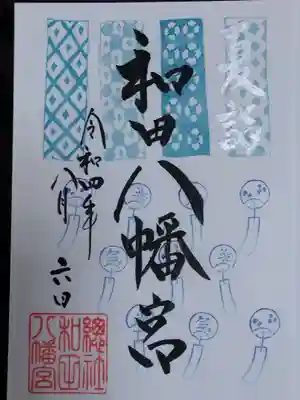 夏詣
和田八幡宮
令和四年
八月六日
總社
和田
八幡宮